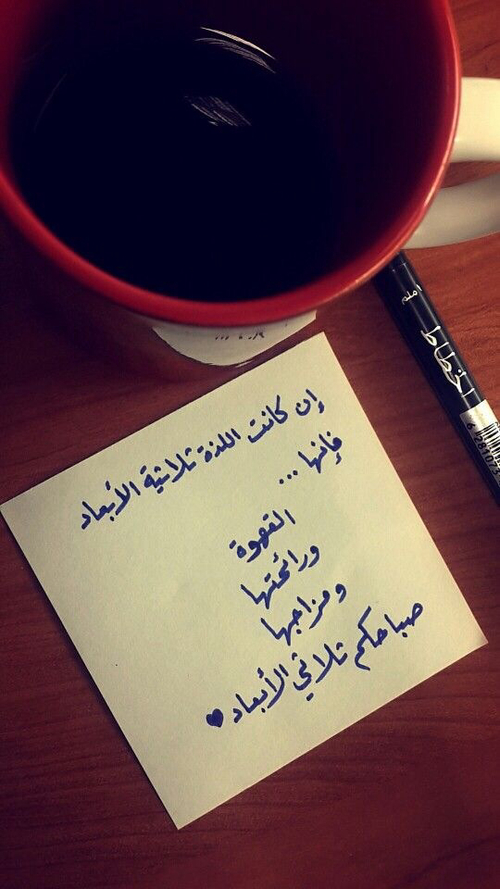 إن كانت اللذة ثلاثية الأبعاد
فإنها ...
القهوة
ورائحتها
ومزاجها
صباحكم ثلاثي الأبعاد ♥
الخطاط